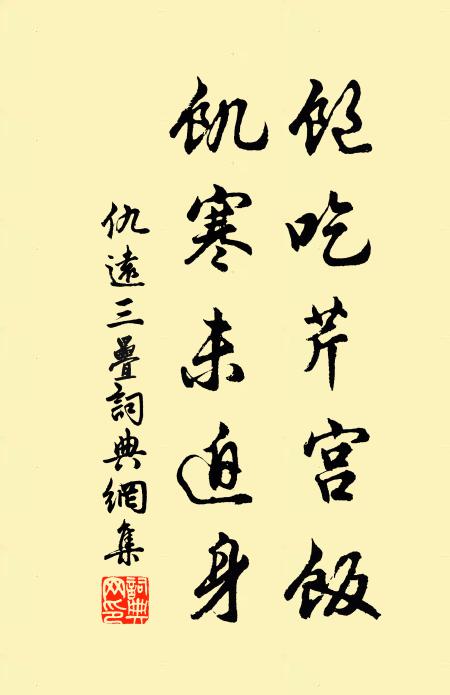 飽吃芹宮飯
飢寒未迫身
仇遠三疊詞典網集
詞典網印